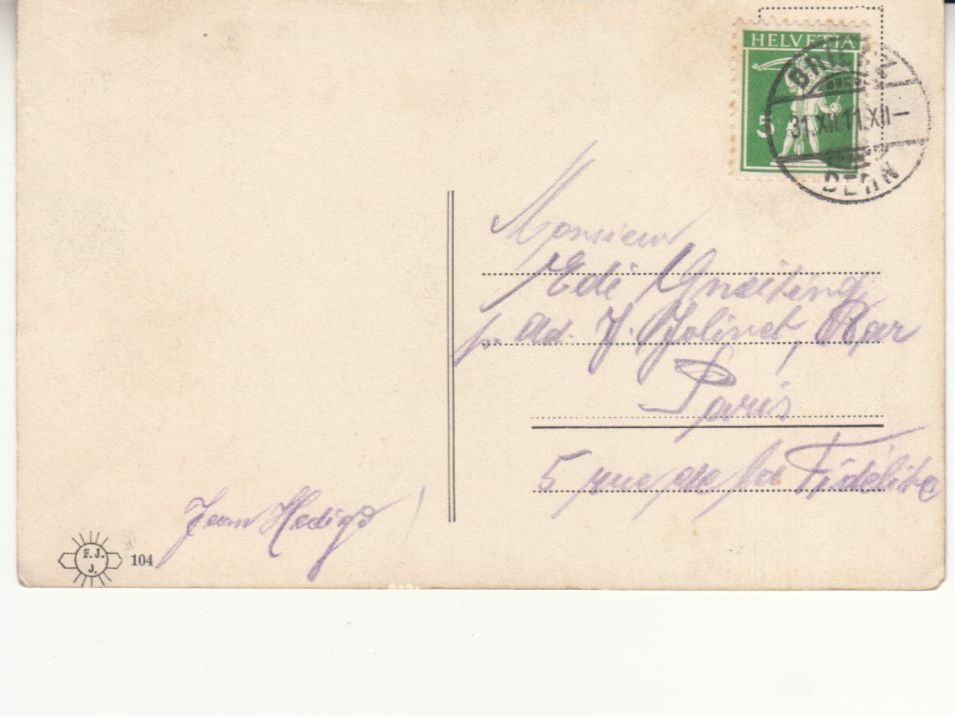 HELVETIA
5
BRIENZ
31.XII.11.XII-
BERN
Monsieur
Edi Gneiting
p. Ad. J. Jolivet, Bar
Paris
5 rue de la Fidélité
Jean
E.J.
J.
104